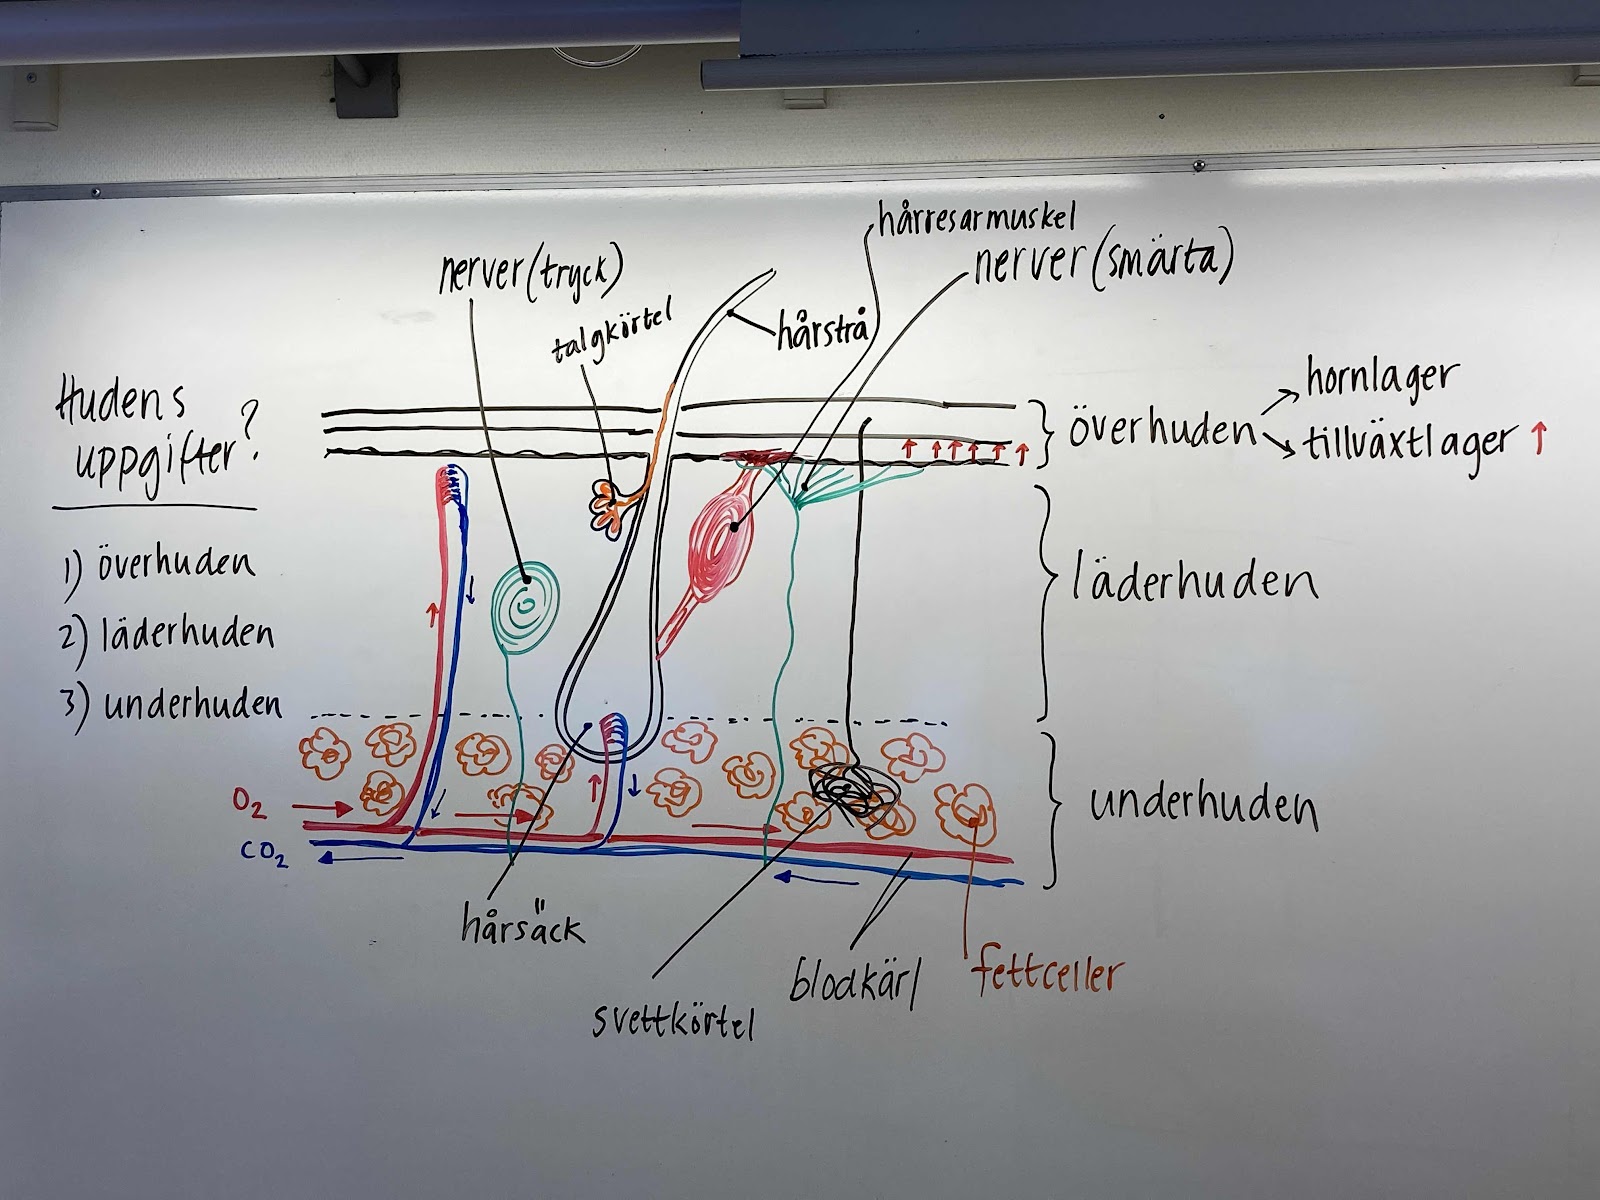 hårresarmuskel
nerver (smärta)
nerver (tryck)
talgkörtel
hårstrå
Hudens
uppgifter?
1) överhuden
2) läderhuden
3) underhuden
överhuden
hornlager
tillväxtlager ↑
läderhuden
underhuden
O₂
CO₂
hårsäck
svettkörtel
blodkärl
fettceller